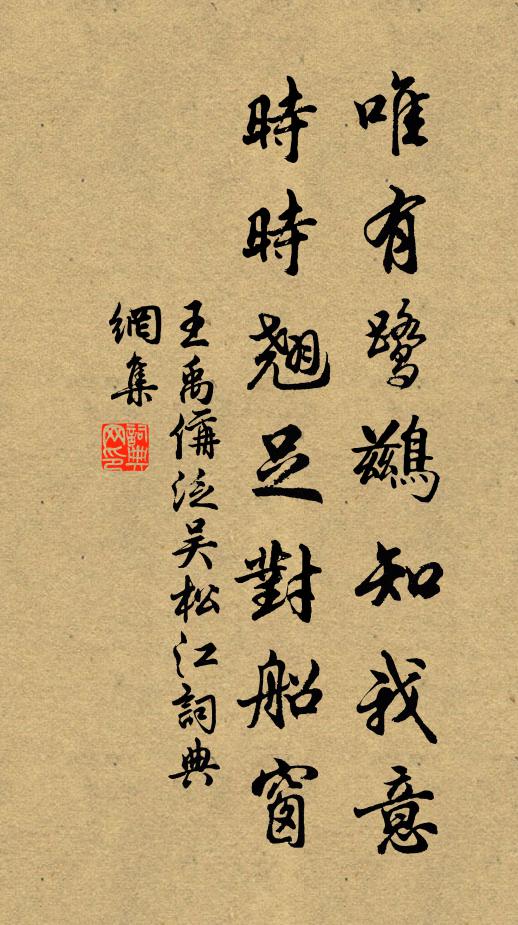 唯有鷺鷀知我意
時時翹足對船窗
王禹偁泛吴松江詞典
網集
詞典
网印